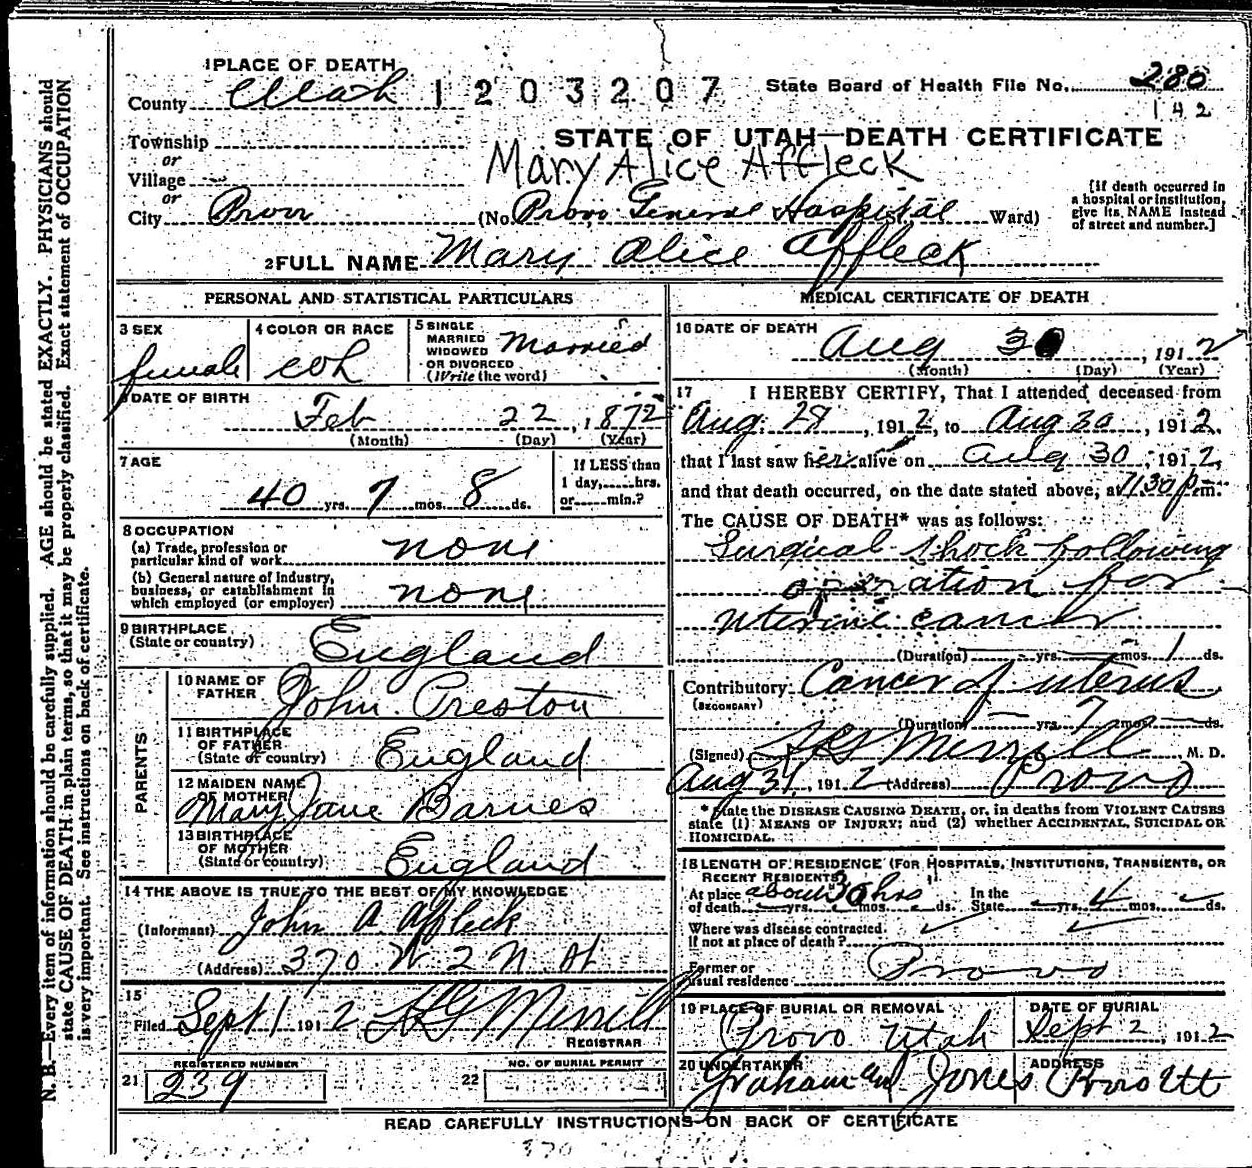 1 PLACE OF DEATH
County Utah 1203207 State Board of Health File No. 280
142
Township
or
Village
or
City Provo
STATE OF UTAH—DEATH CERTIFICATE
Mary Alice Affleck
(No. Provo General Hospital Ward)
[If death occurred in
a hospital or institution,
give its NAME instead
of street and number.]
2 FULL NAME Mary Alice Affleck
PERSONAL AND STATISTICAL PARTICULARS
3 SEX
female
4 COLOR OR RACE
wh
5 SINGLE
MARRIED
WIDOWED
OR DIVORCED
(Write the word)
Married
6 DATE OF BIRTH
Feb 22, 1872
(Month) (Day) (Year)
7 AGE
40 yrs. 7 mos. 8 ds.
If LESS than
1 day, hrs.
or min.?
8 OCCUPATION
(a) Trade, profession or
particular kind of work none
(b) General nature of industry,
business, or establishment in
which employed (or employer) none
9 BIRTHPLACE
(State or country) England
PARENTS
10 NAME OF
FATHER John Preston
11 BIRTHPLACE
OF FATHER
(State or country) England
12 MAIDEN NAME
OF MOTHER
Mary Jane Barnes
13 BIRTHPLACE
OF MOTHER
(State or country) England
14 THE ABOVE IS TRUE TO THE BEST OF MY KNOWLEDGE
(Informant) John A. Affleck
(Address) 370 W 2 N. St
15
Filed Sept 1 1912 Merrill
REGISTRAR
REGISTERED NUMBER
21 239
NO. OF BURIAL PERMIT
22
MEDICAL CERTIFICATE OF DEATH
16 DATE OF DEATH
Aug 30, 1912
(Month) (Day) (Year)
17 I HEREBY CERTIFY, That I attended deceased from
Aug. 28, 1912, to Aug 30, 1912,
that I last saw her alive on Aug 30, 1912,
and that death occurred, on the date stated above, at 7:30 p.m.
The CAUSE OF DEATH* was as follows:
Surgical shock following
operation for
uterine cancer
(Duration) — yrs. — mos. 1 ds.
Contributory Cancer of uterus
(SECONDARY)
(Duration) — yrs. 7 mos. — ds.
(Signed) Merrill M. D.
Aug 31, 1912 (Address) Provo
* State the DISEASE CAUSING DEATH, or, in deaths from VIOLENT CAUSES
state (1) MEANS OF INJURY; and (2) whether ACCIDENTAL, SUICIDAL OR
HOMICIDAL.
18 LENGTH OF RESIDENCE (FOR HOSPITALS, INSTITUTIONS, TRANSIENTS, OR
RECENT RESIDENTS)
At place about 36 hrs In the
of death yrs. mos. ds. State yrs. 4 mos. ds.
Where was disease contracted
if not at place of death?
Former or
usual residence Provo
19 PLACE OF BURIAL OR REMOVAL
Provo Utah
DATE OF BURIAL
Sept 2, 1912
20 UNDERTAKER
Graham and Jones
ADDRESS
Provo Utt
READ CAREFULLY INSTRUCTIONS ON BACK OF CERTIFICATE
370
N. B.—Every item of information should be carefully supplied. AGE should be stated EXACTLY. PHYSICIANS should
state CAUSE OF DEATH in plain terms, so that it may be properly classified. Exact statement of OCCUPATION
is very important. See instructions on back of certificate.